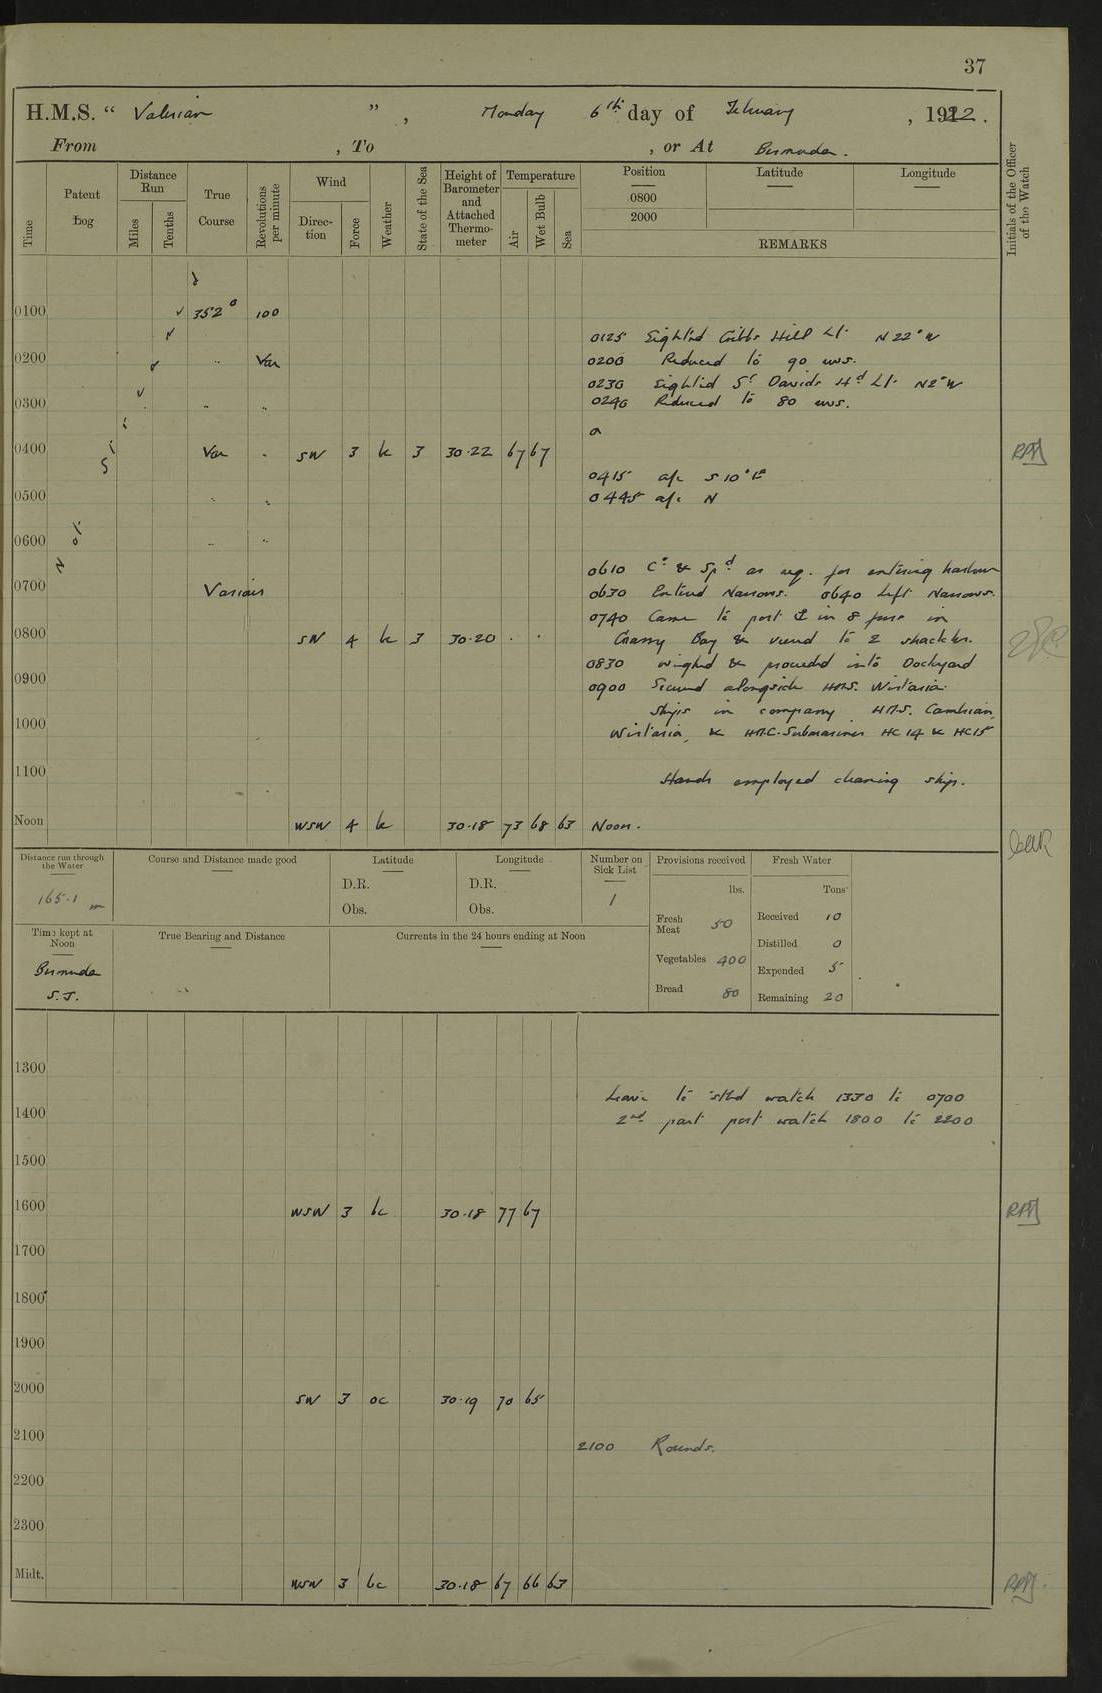 37
H.M.S. “ Valerian ” , Monday 6th day of February , 1922 .
From , To , or At Bermuda .
Time
Patent Log
Distance Run
Miles
Tenths
True Course
Revolutions per minute
Wind
Direc- tion
Force
Weather
State of the Sea
Height of Barometer and Attached Thermo- meter
Temperature
Air
Wet Bulb
Sea
Position
0800
2000
Latitude
Longitude
REMARKS
Initials of the Officer of the Watch
0100 352° 100
0125 Sighted Gibbs Hill Lt. N 22° W
0200 " Var 0200 Reduced to 90 revs.
0230 Sighted St Davids Hd Lt. N2°W
0300 " " 0240 Reduced to 80 revs.
0400 Var " SW 3 bc 3 30.22 67 67
0415 a/c S 10° E
0500 " " 0445 a/c N
0600 " "
No
0610 Co & Spd as req. for entering harbour
0700 Various 0630 Entered Narrows. 0640 Left Narrows.
0740 Came to port in 8 fms in
0800 SW 4 bc 3 30.20 Grassy Bay & veered to 2 shackles.
0830 weighed & proceeded into Dockyard
0900 0900 Secured alongside HMS. Wistaria.
Ships in company HMS. Cambrian,
1000 Wistaria, & HMC. Submarines HC 14 & HC15
1100 Hands employed cleaning ship.
Noon WSW 4 bc 30.18 73 68 63 Noon.
Distance run through the Water
165.1 m
Course and Distance made good
Latitude
D.R.
Obs.
Longitude
D.R.
Obs.
Number on Sick List
1
Provisions received
lbs.
Fresh Meat 50
Vegetables 400
Bread 80
Fresh Water
Tons
Received 10
Distilled 0
Expended 5
Remaining 20
Time kept at Noon
Bermuda
S.T.
True Bearing and Distance
Currents in the 24 hours ending at Noon
1300
Leave to stbd watch 1330 to 0700
1400 2nd part port watch 1800 to 2200
1500
1600 WSW 3 bc 30.18 77 67
1700
1800
1900
2000 SW 3 oc 30.19 70 65
2100 2100 Rounds.
2200
2300
Midt. WSW 3 bc 30.18 67 66 63